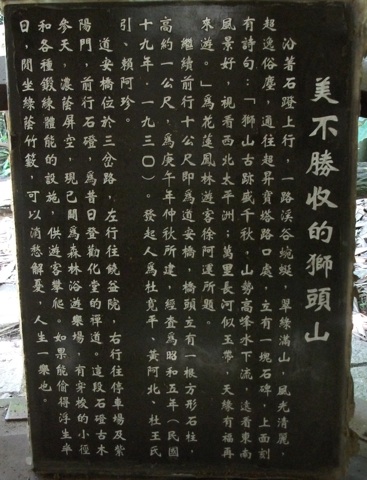 美不勝收的獅頭山
沿著石磴上行，一路溪谷蜿蜒，翠綠滿山，風光清麗，
超逸俗塵，通往超昇寶塔路口處，立有一塊石碑，上面刻
有詩句：「獅山古跡盛千秋，山勢高峰水下流，遠看東南
風景好，視看西北太平洲；萬里長河似玉帶，天緣有福再
來遊。」為花蓮鳳林遊客徐阿運所題。
繼續前行十公尺即為道安橋，橋頭立有一根方形石柱，
高約一公尺，為庚午年仲秋所建，經查為昭和五年（民國
十九年，一九三〇）。發起人為杜寬平、黃阿北、杜王氏
引、賴阿珍。
道安橋位於三岔路，左行往饒益院，右行往停車場及紫
陽門，前行石磴，為昔日登勸化堂的禪道。這段石磴古木
參天，濃蔭屏空，現已闢為森林浴遊樂場，有穿梭的小徑
和各種鍛練體能的設施，供遊客攀爬。如果能偷得浮生半
日，閒坐綠蔭竹篁，可以消愁解憂，人生一樂也。